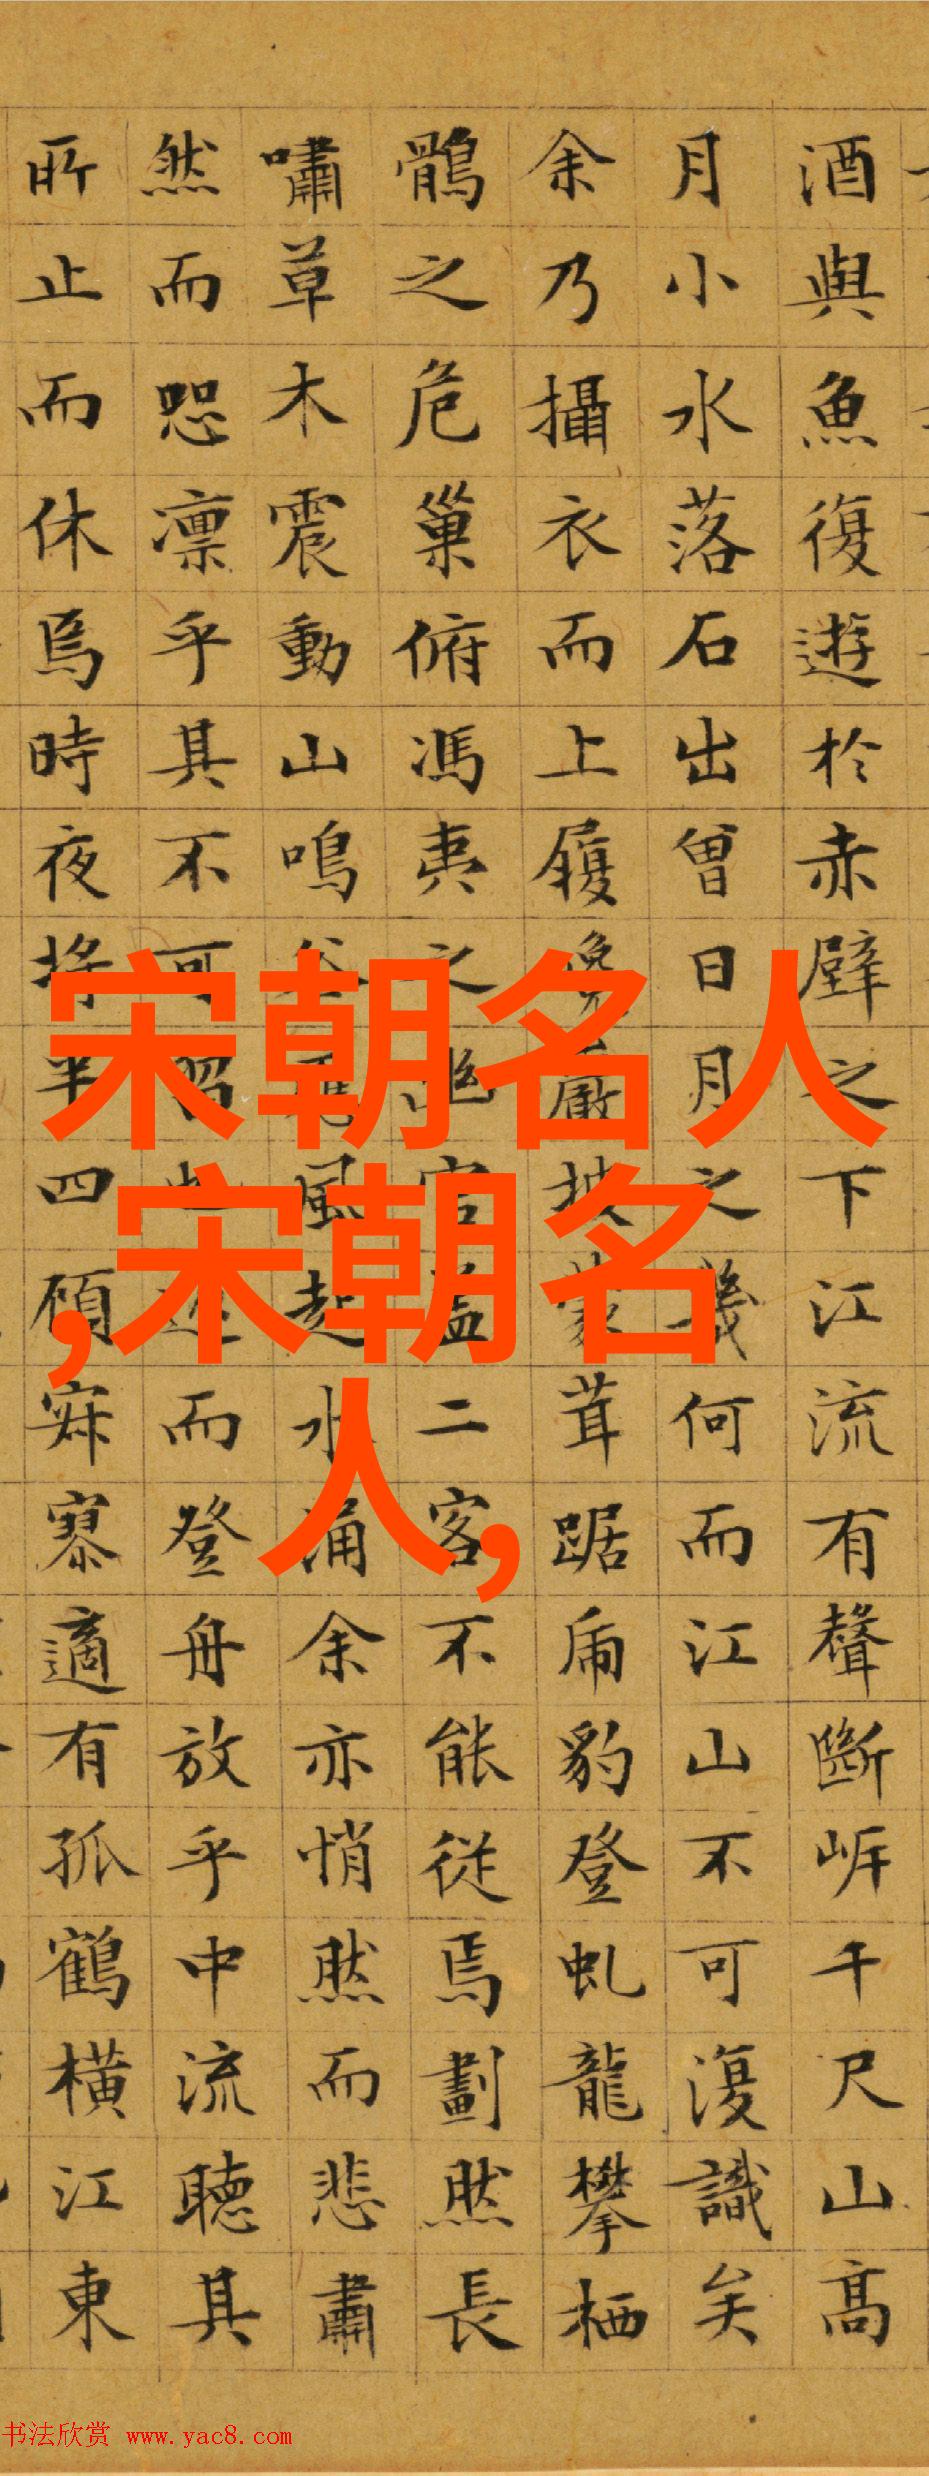 酒與魚復遊於赤壁之下江流有聲斷岸千尺山高
月小水落石出曾日月之幾何而江山不可復識矣
余乃攝衣而上履巉巖披蒙茸踞虎豹登虬龍攀栖
鶻之危巢俯馮夷之幽宮蓋二客不能從焉劃然長
嘯草木震動山鳴谷應風起水涌余亦悄然而悲肅
然而恐凛乎其不可留也返而登舟放乎中流聽其
所止而休焉時夜將半四顧寂寥適有孤鶴橫江東
宋朝名人
,宋朝名
人,
书法欣赏 www.yac8.com